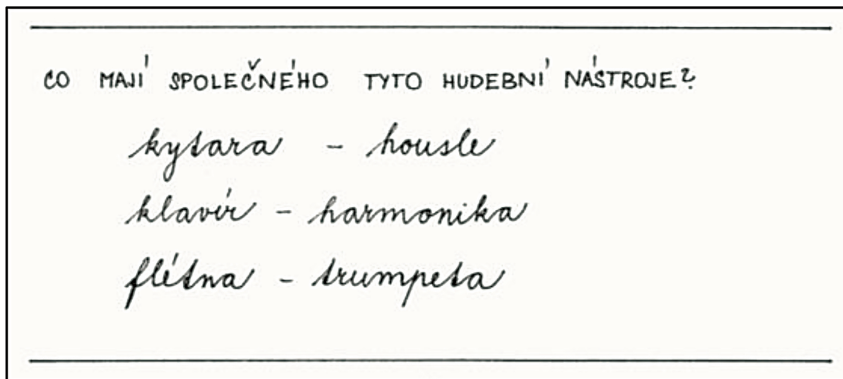 CO MAJÍ SPOLEČNÉHO TYTO HUDEBNÍ NÁSTROJE?
kytara - housle
klavír - harmonika
flétna - trumpeta